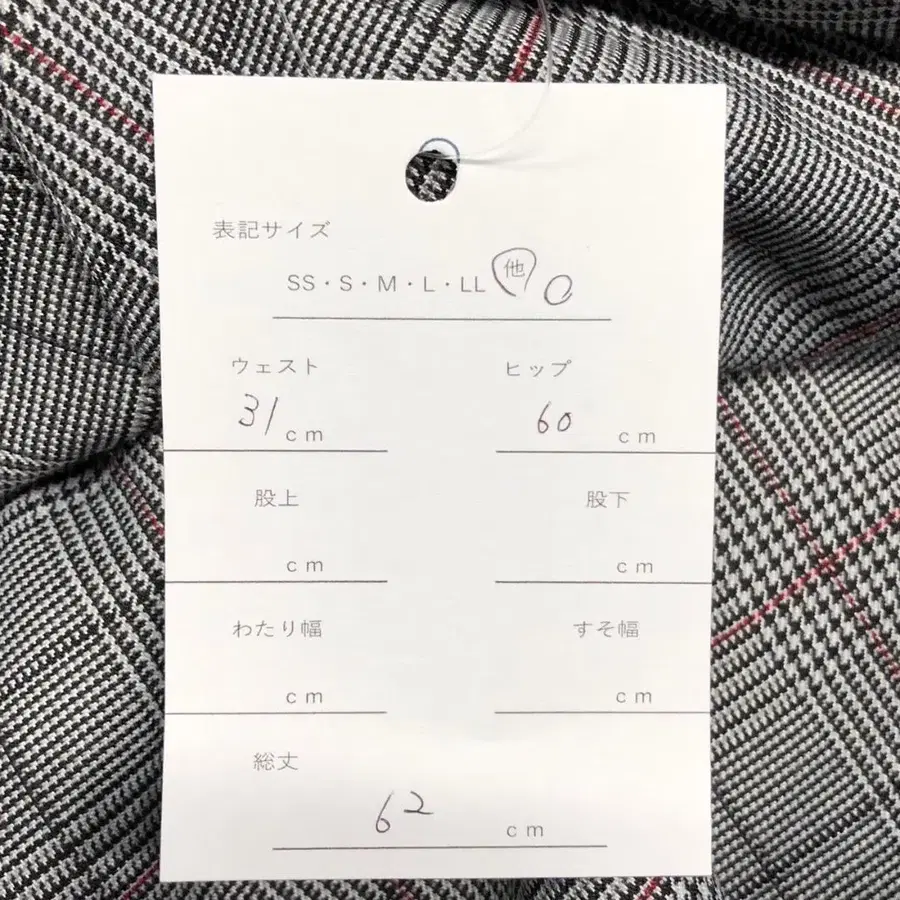 表記サイズ
SS・S・M・L・LL 他 0
ウェスト ヒップ
31 cm 60 cm
股上 股下
cm cm
わたり幅 すそ幅
cm cm
総丈
62 cm